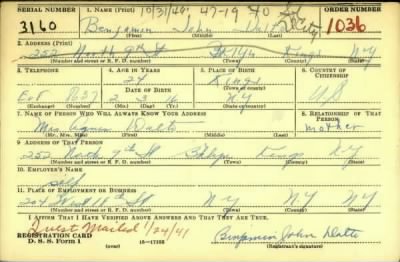 SERIAL NUMBER 1. NAME (Print) 10/31/46 47-19 40 ORDER NUMBER
3160 Benjamin John 1036
2. ADDRESS (Print)
252 North 9th St Bklyn Kings NY
(Number and street or R. F. D. number) (Town) (County) (State)
3. TELEPHONE 4. AGE IN YEARS 5. PLACE OF BIRTH 6. COUNTRY OF CITIZENSHIP
24 Kings
DATE OF BIRTH
NY
(Exchange) (Number) (Mo.) (Day) (Yr.) (State or country)
7. NAME OF PERSON WHO WILL ALWAYS KNOW YOUR ADDRESS 8. RELATIONSHIP OF THAT PERSON
Mrs mother
(Mr., Mrs., Miss)
9. ADDRESS OF THAT PERSON
252 North 9th St Bklyn Kings NY
(Number and street or R. F. D. number) (Town) (County) (State)
10. EMPLOYER'S NAME
self
11. PLACE OF EMPLOYMENT OR BUSINESS
204 West St NY NY NY
(Number and street or R. F. D. number) (Town) (County) (State)
I AFFIRM THAT I HAVE VERIFIED ABOVE ANSWERS AND THAT THEY ARE TRUE.
Quest Mailed 1/24/41
REGISTRATION CARD
D. S. S. Form 1 Benjamin John
(Registrant's signature)